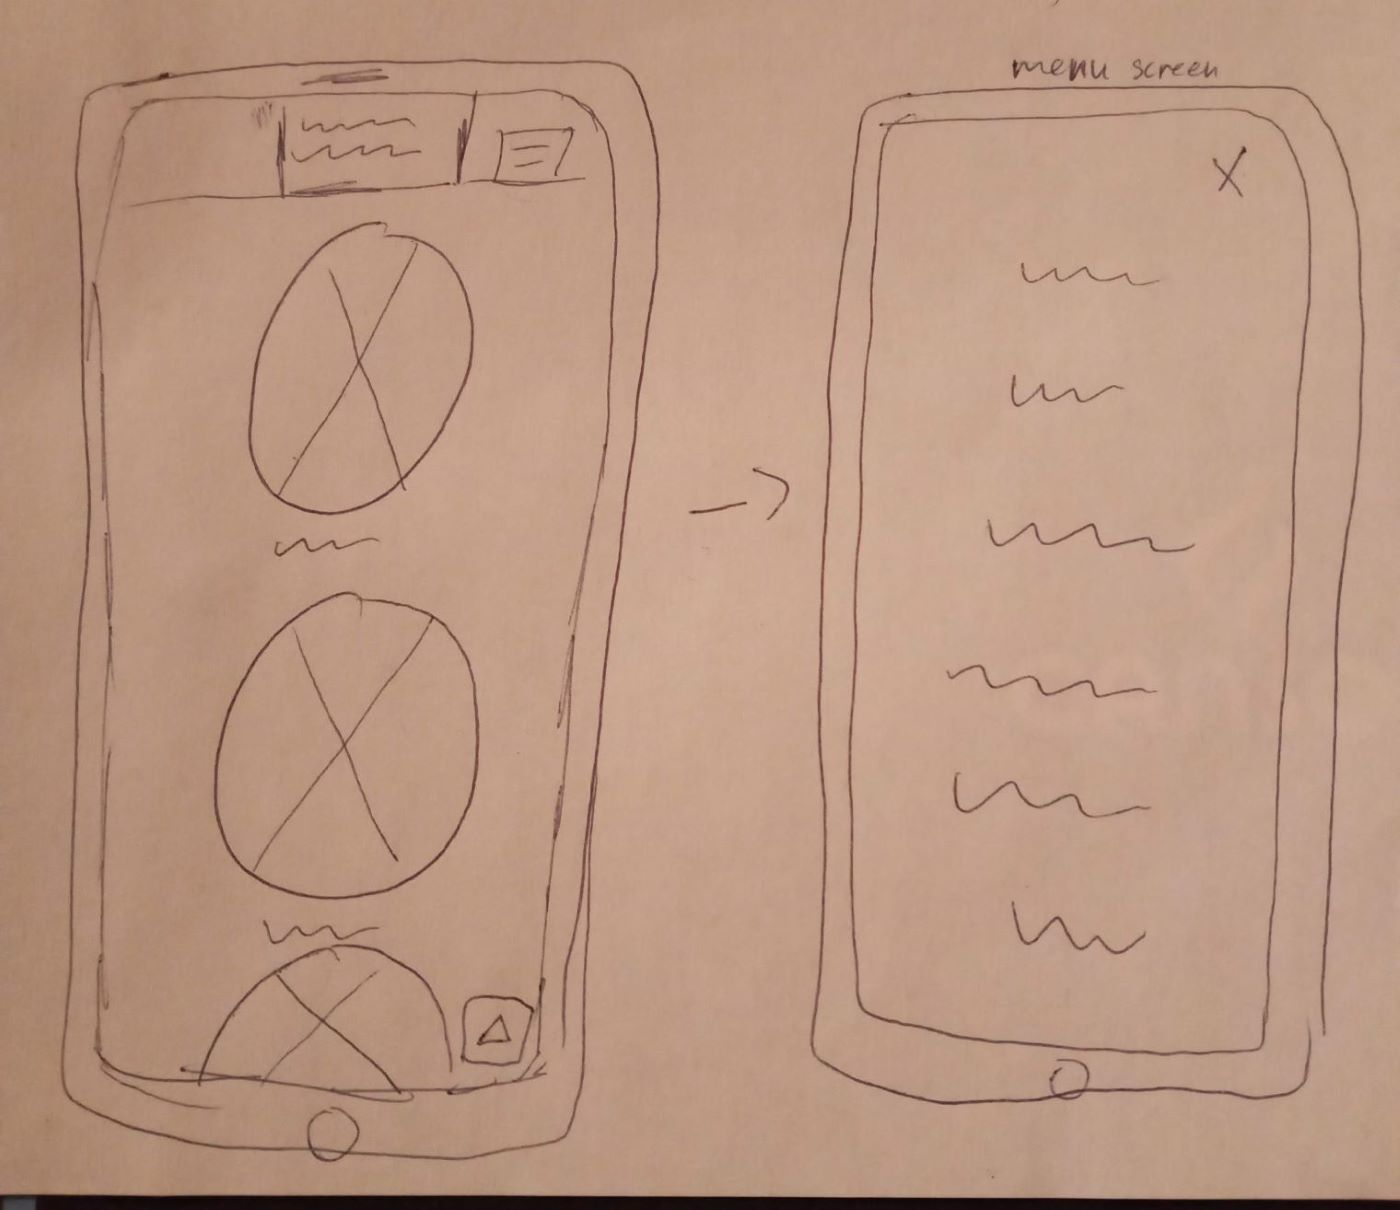 menu screen